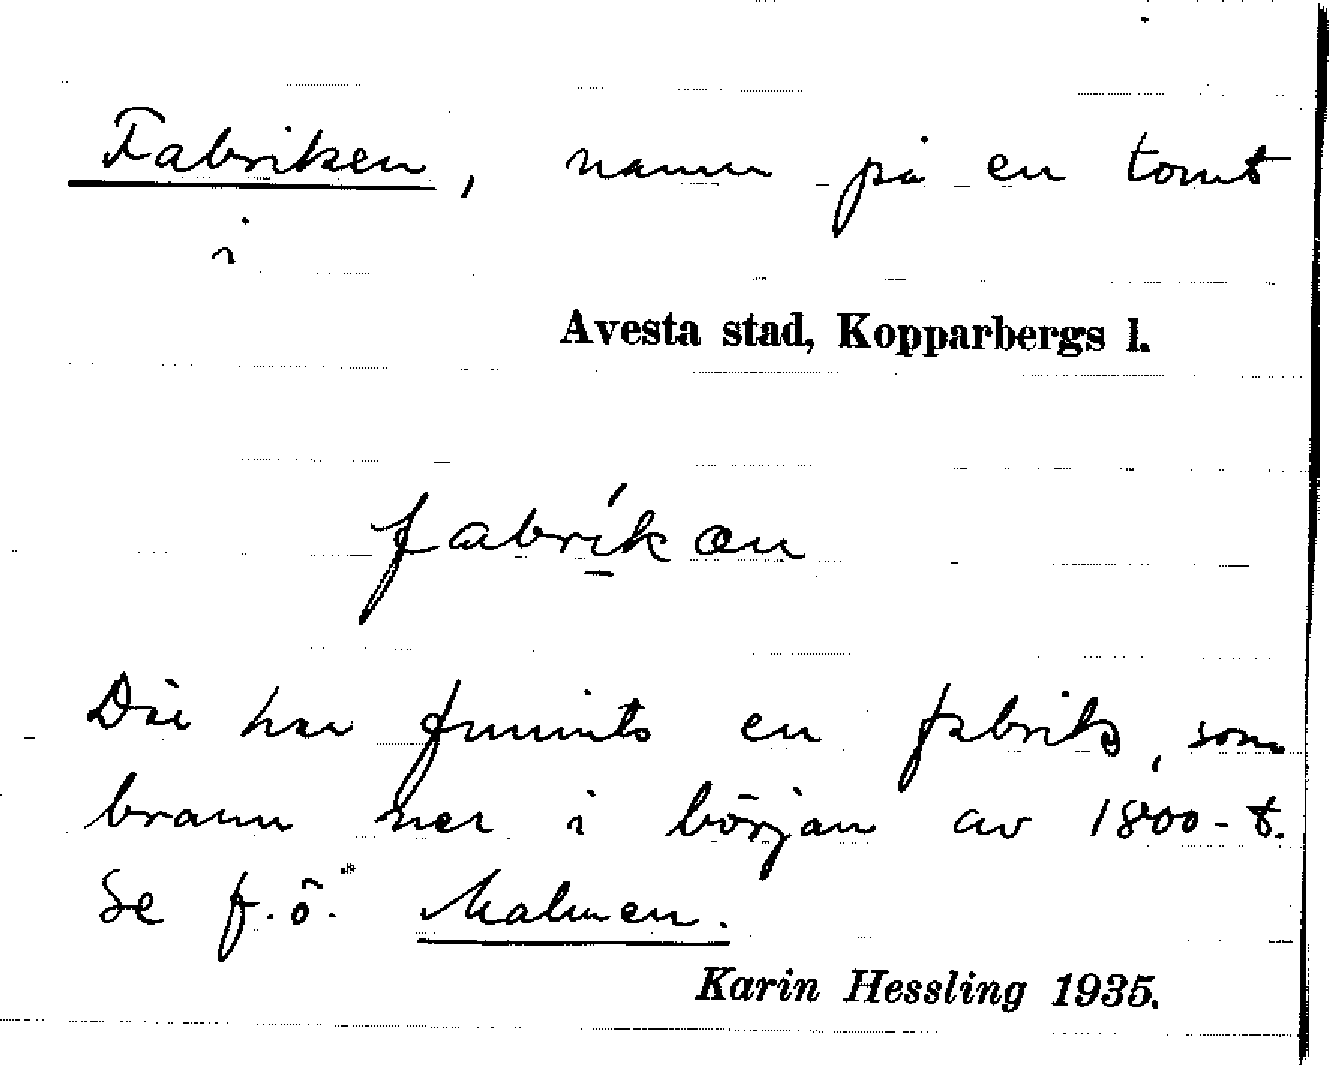 Fabriken, namn på en tomt
i
Avesta stad, Kopparbergs l.
fabríkœn
Där har funnits en fabrik, som
brann ner i början av 1800-t.
Se f.ö. Malmen.
Karin Hessling 1935.